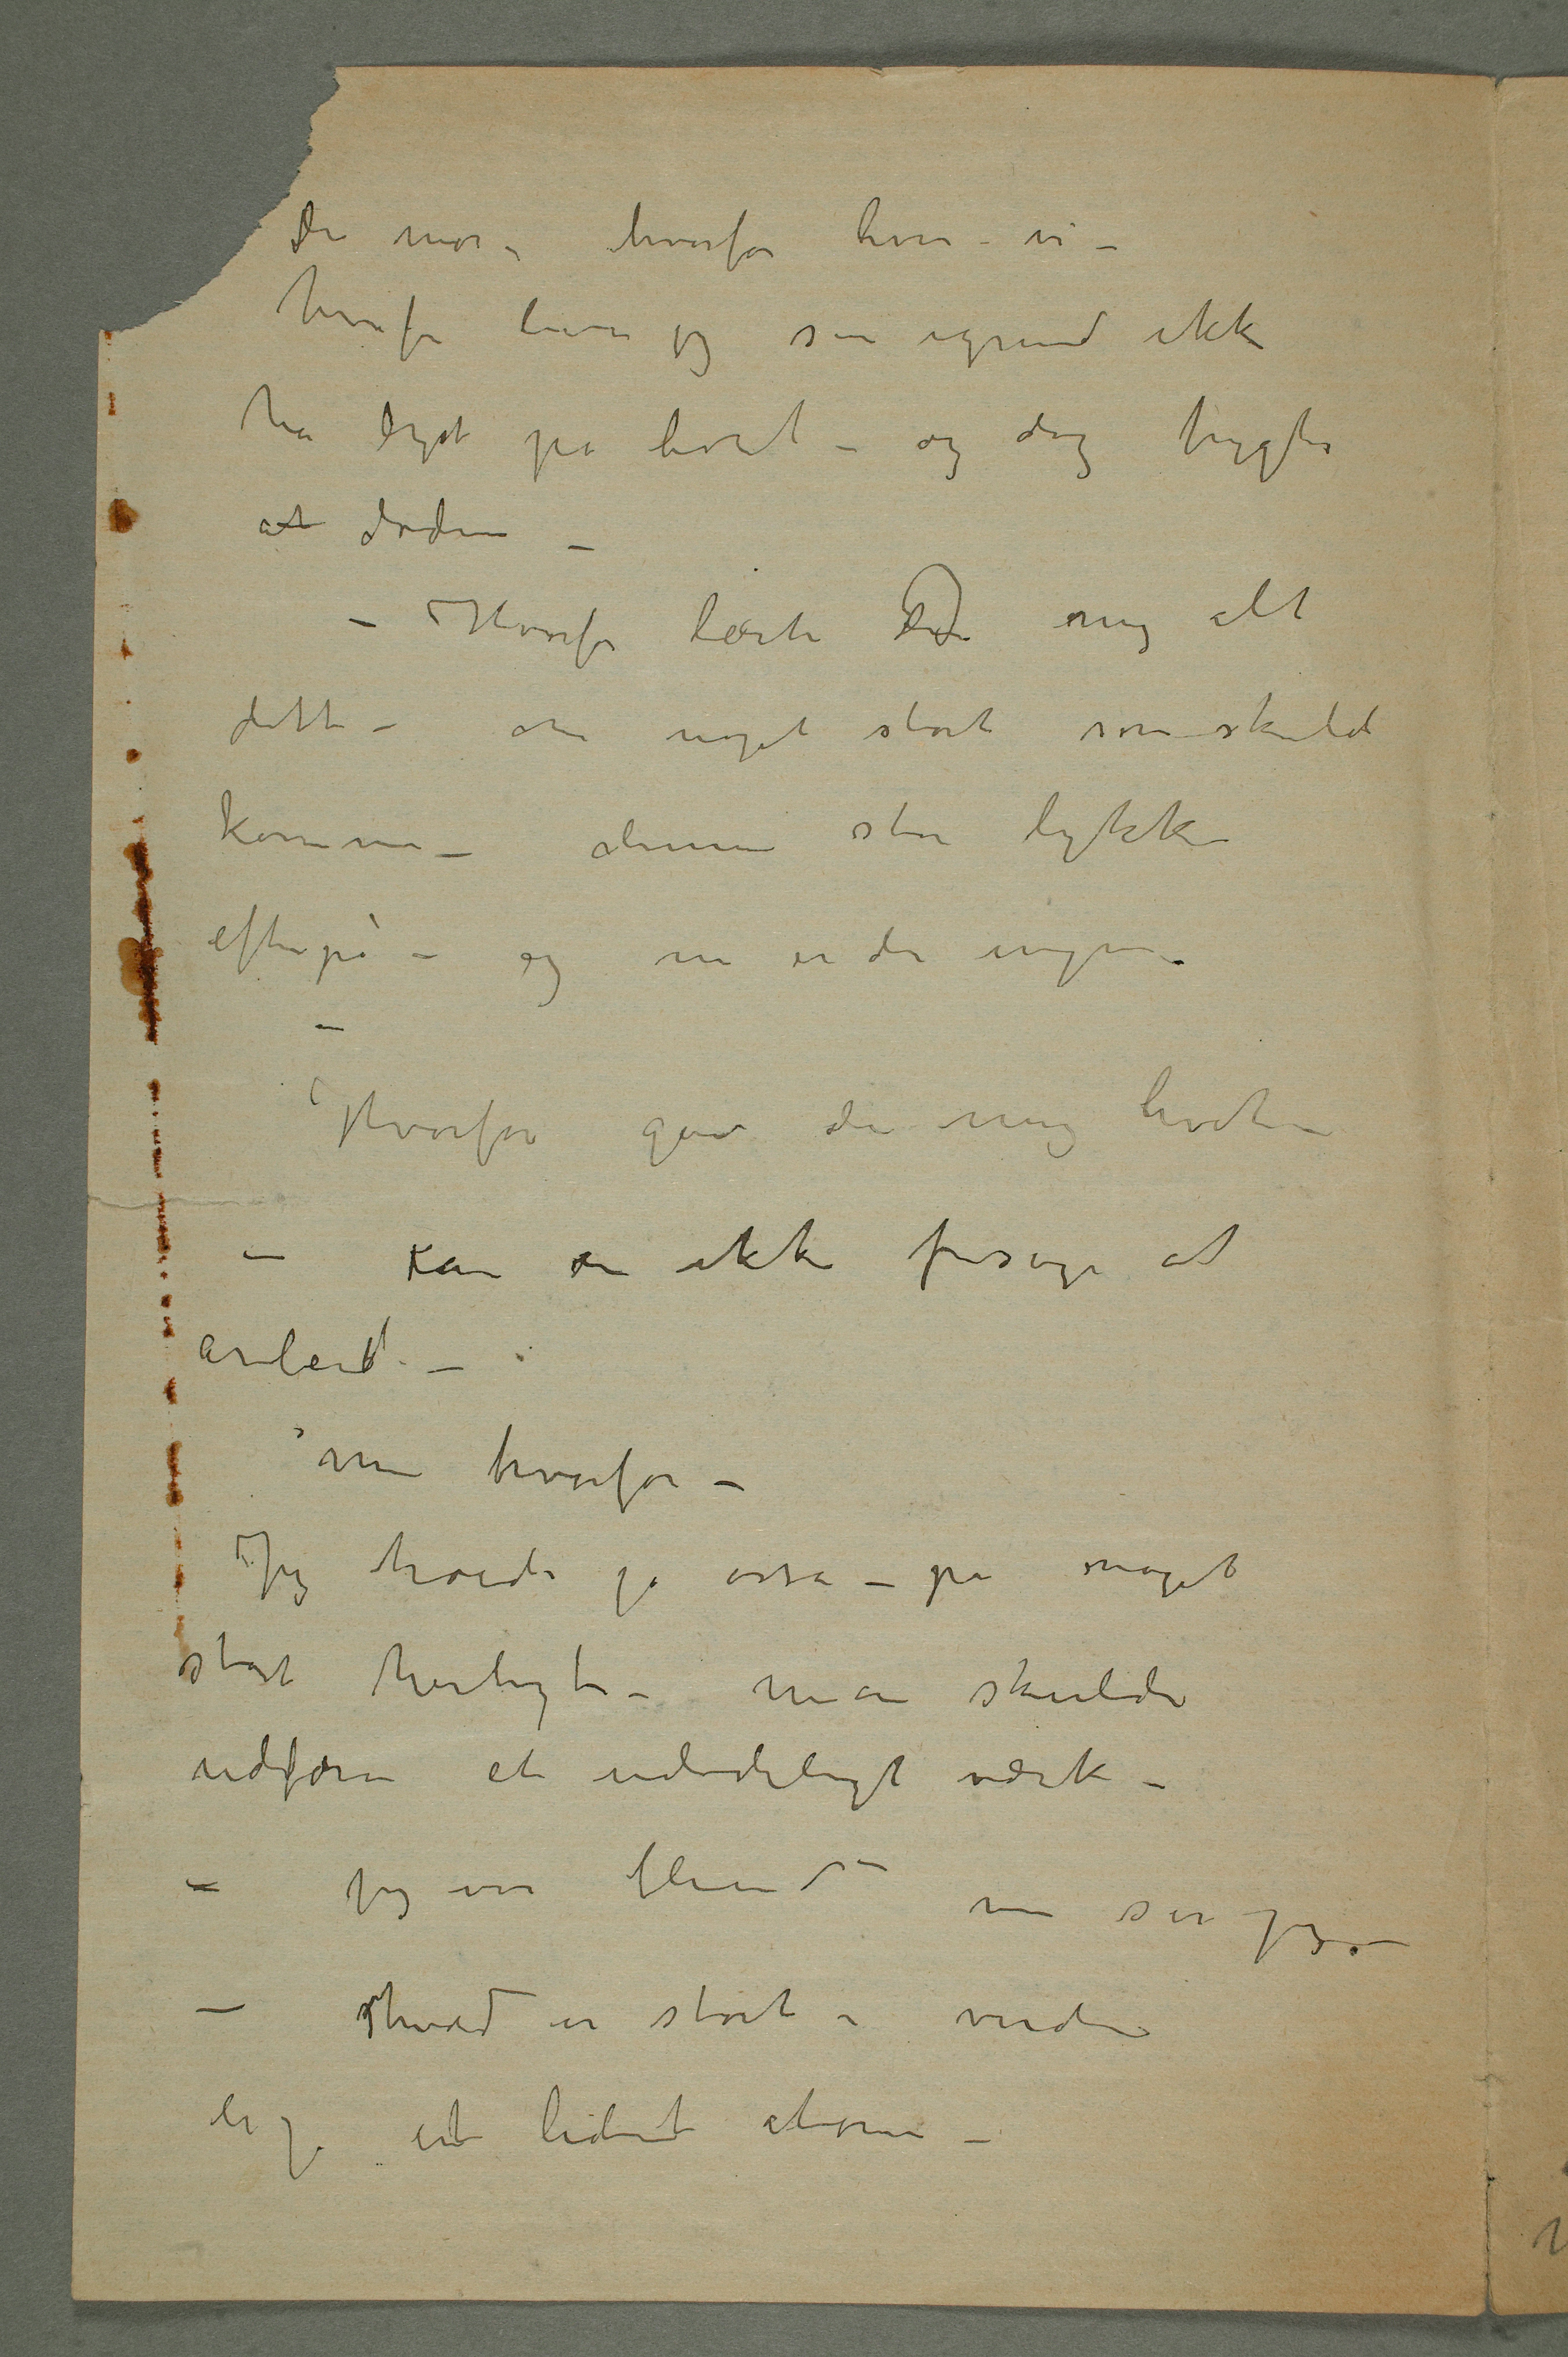 Du mor, hvorfor lever vi –
hvorfor lever jeg som igrund ikke
ha lyst på livet – og dog frygter
at døden –
– Hvorfor lærte Du mig alt
dette – om noget stort som skulde
komme – denne store lykke
efterpå – og nu er der ingen.
–
Hvorfor gav du mig livet –
– kan en ikke forsøge at
arbeide –
men hvorfor –
Jeg troede jo også – på noget
stort herligt – man skulde
udføre et udødeligt værk –
– jeg var blind – nu ser jeg. –
– hvad er stort – verden
er jo et lidet atom –